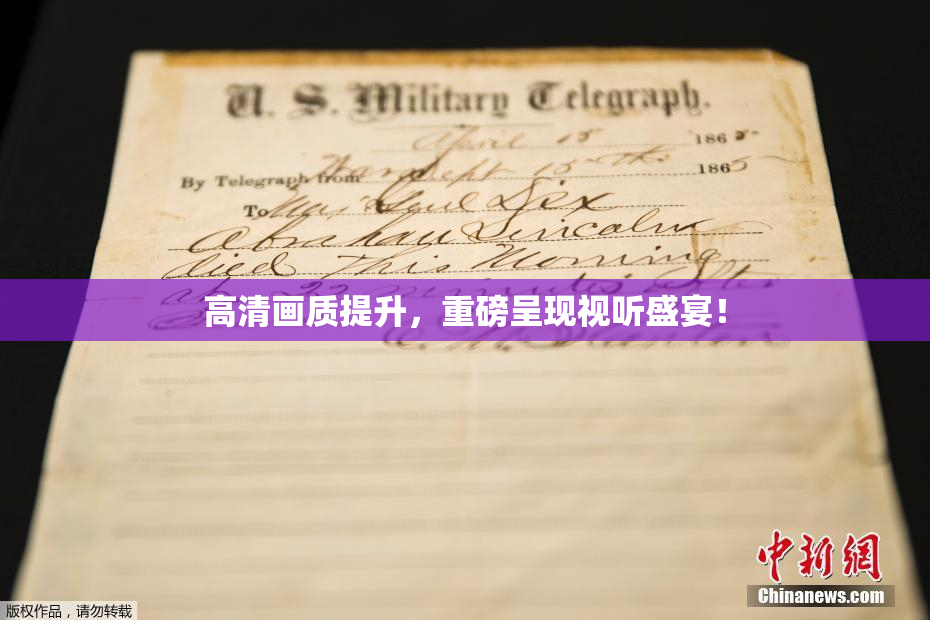 U. S. Military Telegraph.
April 15 1865
By Telegraph from War Dept 15th 1865
To Maj Genl Dix
Abraham Lincoln
died This Morning
at 22 minutes after
高清画质提升，重磅呈现视听盛宴！
E. M. Stanton
中新网
Chinanews.com
版权作品，请勿转载